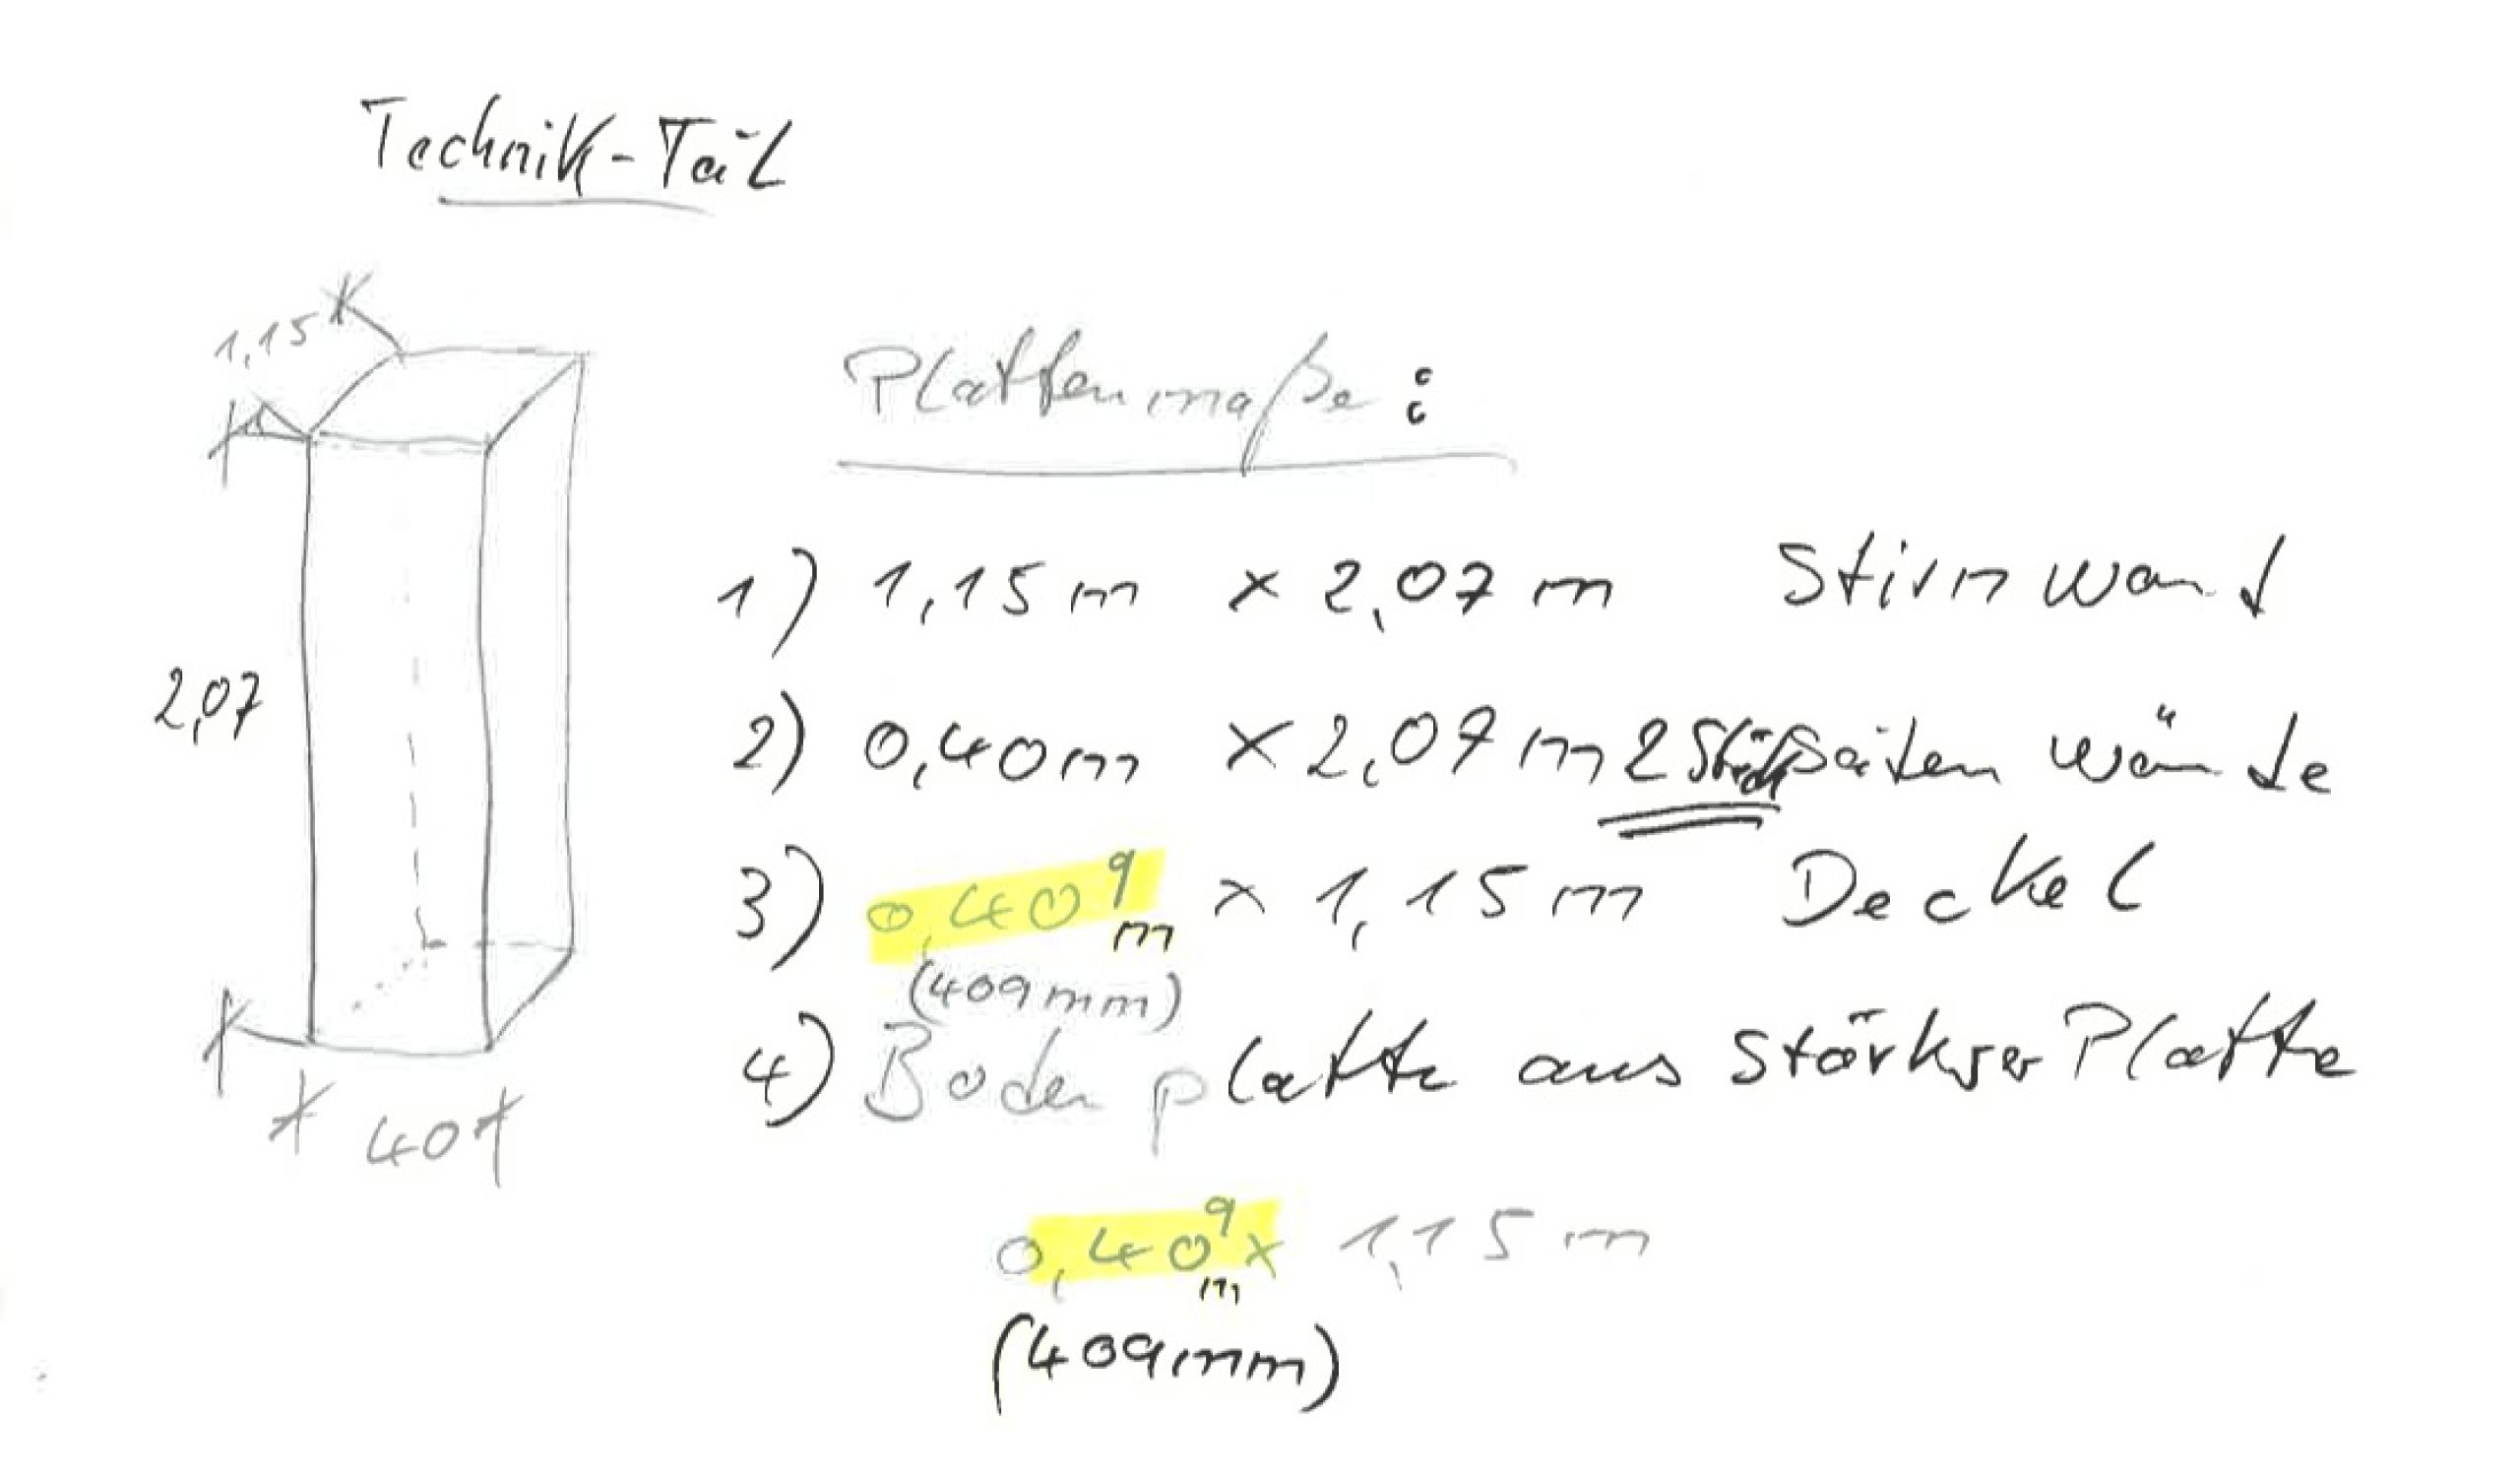 Technik-Teil
1,15
Plattenmaße:
1) 1,15 m x 2,07 m Stirnwand
2,07
2) 0,40 m x 2,07 m 2 Stück Seitenwände
3) 0,409 m x 1,15 m Deckel
(409mm)
4) Bodenplatte aus stärkser Platte
40
0,409 m x 1,15 m
(409mm)